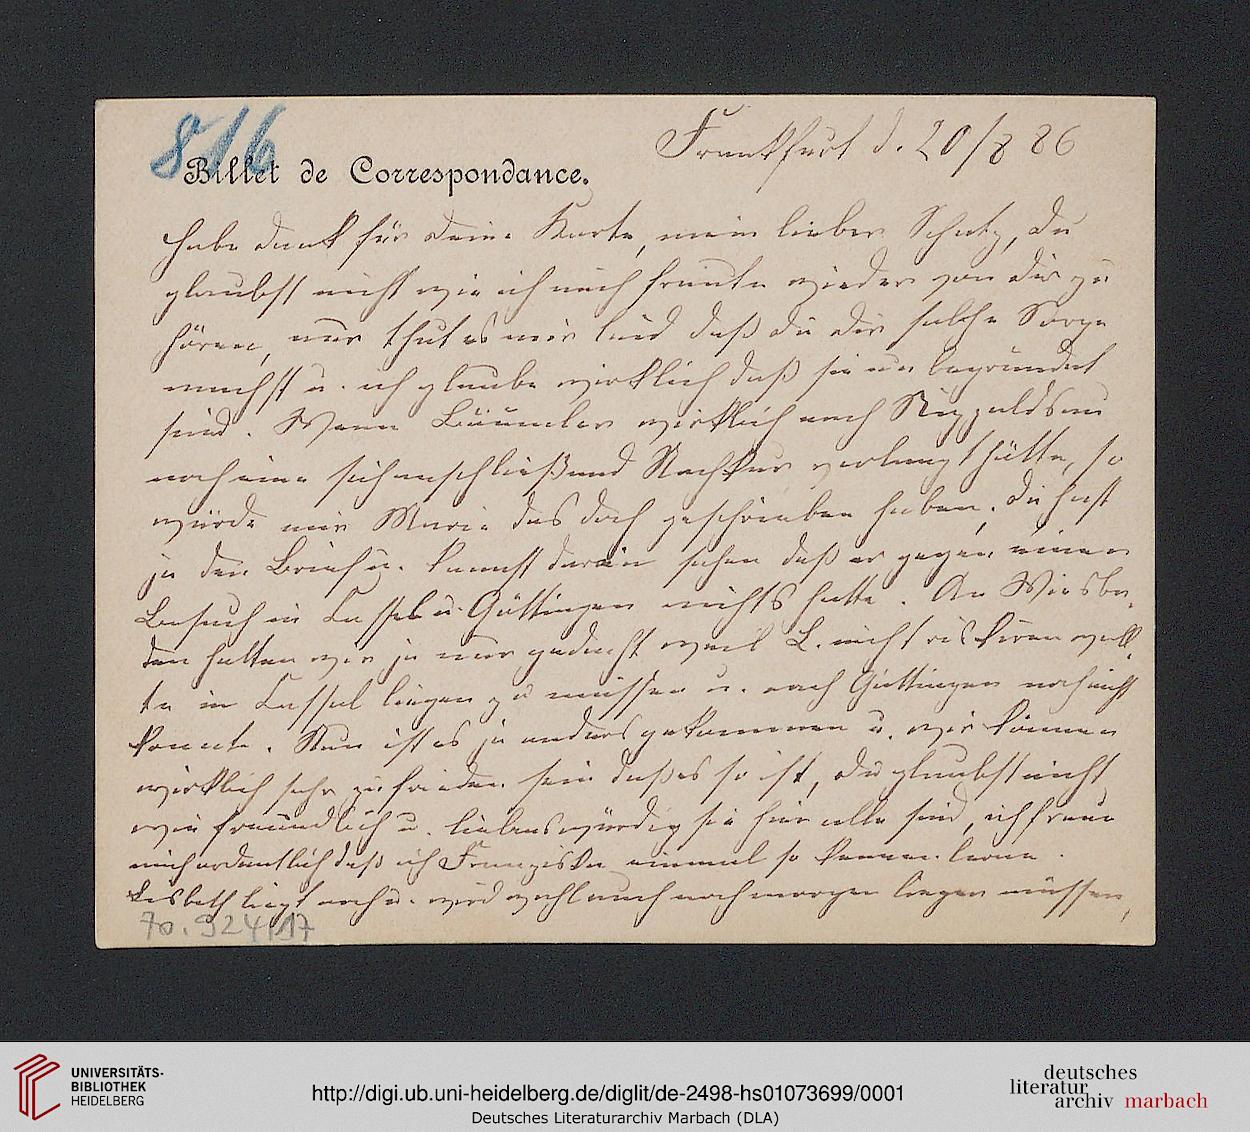 816
Billet de Correspondance.
Frankfurt d. 20/8 86
Habe dank für deine Karte, mein lieber Schatz, du
glaubst nicht wie ich mich freute wieder von dir zu
hören, nur thut es mir leid daß du dir solche Sorge
machst u. ich glaube wirklich daß sie unbegründet
sind. Wenn Bäumler wirklich nach Rippoldsau
noch eine sich anschließend Nachkur verlangt hätte, so
würde mir Marie das doch geschrieben haben. Du hast
ja den Brief u. kannst darin sehen daß er gegen einen
Besuch in Cassel u. Göttingen nichts hatte. An Wiesba-
den hatten wir ja nur gedacht weil L. nicht riskiren woll-
te in Cassel liegen zu müssen u. nach Göttingen noch nicht
konnte. Nun ist es ja anders gekommen u. wir können
wirklich sehr zufrieden sein daß es so ist, du glaubst nicht
wie freundlich u. liebenswürdig sie hier alle sind, ich freue
mich ordentlich daß ich Franziska einmal so kennen lerne.
Lisbeth liegt noch u. wird wohl auch noch morgen liegen müssen,
70.924/17
UNIVERSITÄTS-
BIBLIOTHEK
HEIDELBERG
http://digi.ub.uni-heidelberg.de/diglit/de-2498-hs01073699/0001
Deutsches Literaturarchiv Marbach (DLA)
deutsches
literatur
archiv marbach